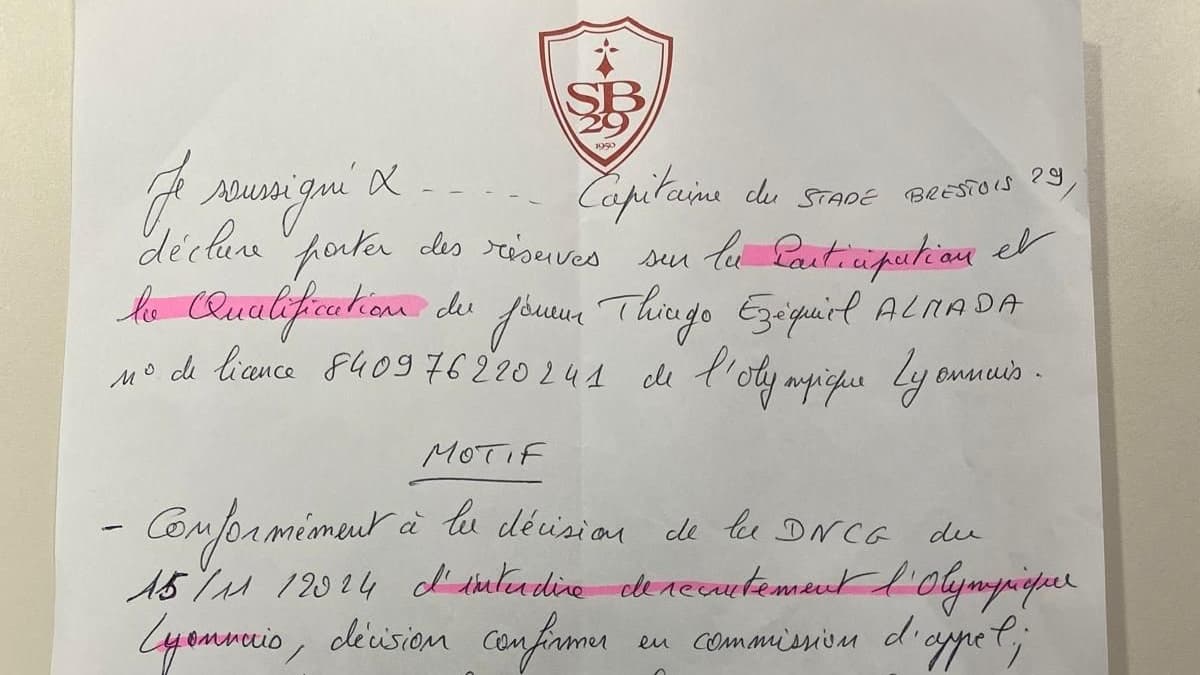 SB
29
1950
Je soussigné X ------ Capitaine du STADE BRESTOIS 29,
déclare porter des réserves sur la Participation et
la Qualification du joueur Thiago Ezéquiel ALMADA
n° de licence 840976220241 de l'olympique Lyonnais.
MOTIF
- Conformément à la décision de la DNCG du
15/11/2024 d'interdire de recrutement l'Olympique
Lyonnais, décision confirmer en commission d'appel;